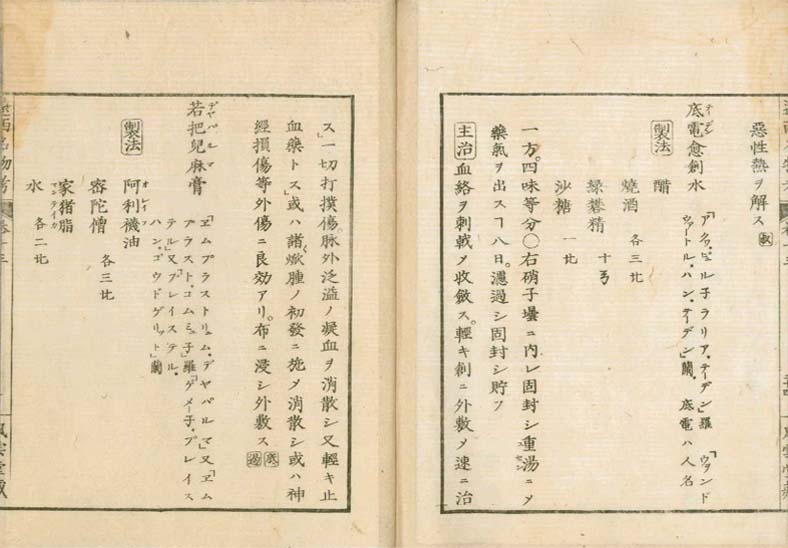 惡性熱ヲ解ス
底電愈創水
テーデン
「アクワ・ヒュル子ラリア・テーデン」羅「ウヲンド
ワートル・ハン・テーデン」蘭 底電ハ人名
製法
醋
燒酒 各三卄
緑礬精 十𠄎
沙糖 一卄
一方。四味等分〇右硝子壜ニ内レ固封シ重湯ニメ
藥氣ヲ出スヿ八日。濾過シ固封シ貯フ
主治 血絡ヲ刺戟ノ收斂ス。輕キ創ニ外敷メ速ニ治
ス」一切打撲傷。脉外泛溢ノ凝血ヲ消散シ又輕キ止
血藥トス」或ハ諸焮腫ノ初發ニ施メ消散シ或ハ神
經損傷等外傷ニ良効アリ。布ニ浸シ外敷ス
若把兒麻膏
デヤパルマ
「ヱムプラストリュム・デヤパルマ」又「ヱム
プラスト・コムミュ子」羅「ゲメー子・プレイス
テル」又「プレイステル・
ハン・ゴウドゲリット」蘭
製法
阿利襪油
オレーフ
密陀僧 各三卄
家猪脂
マンテイカ
水 各二卄
卷十三
風雲堂藏